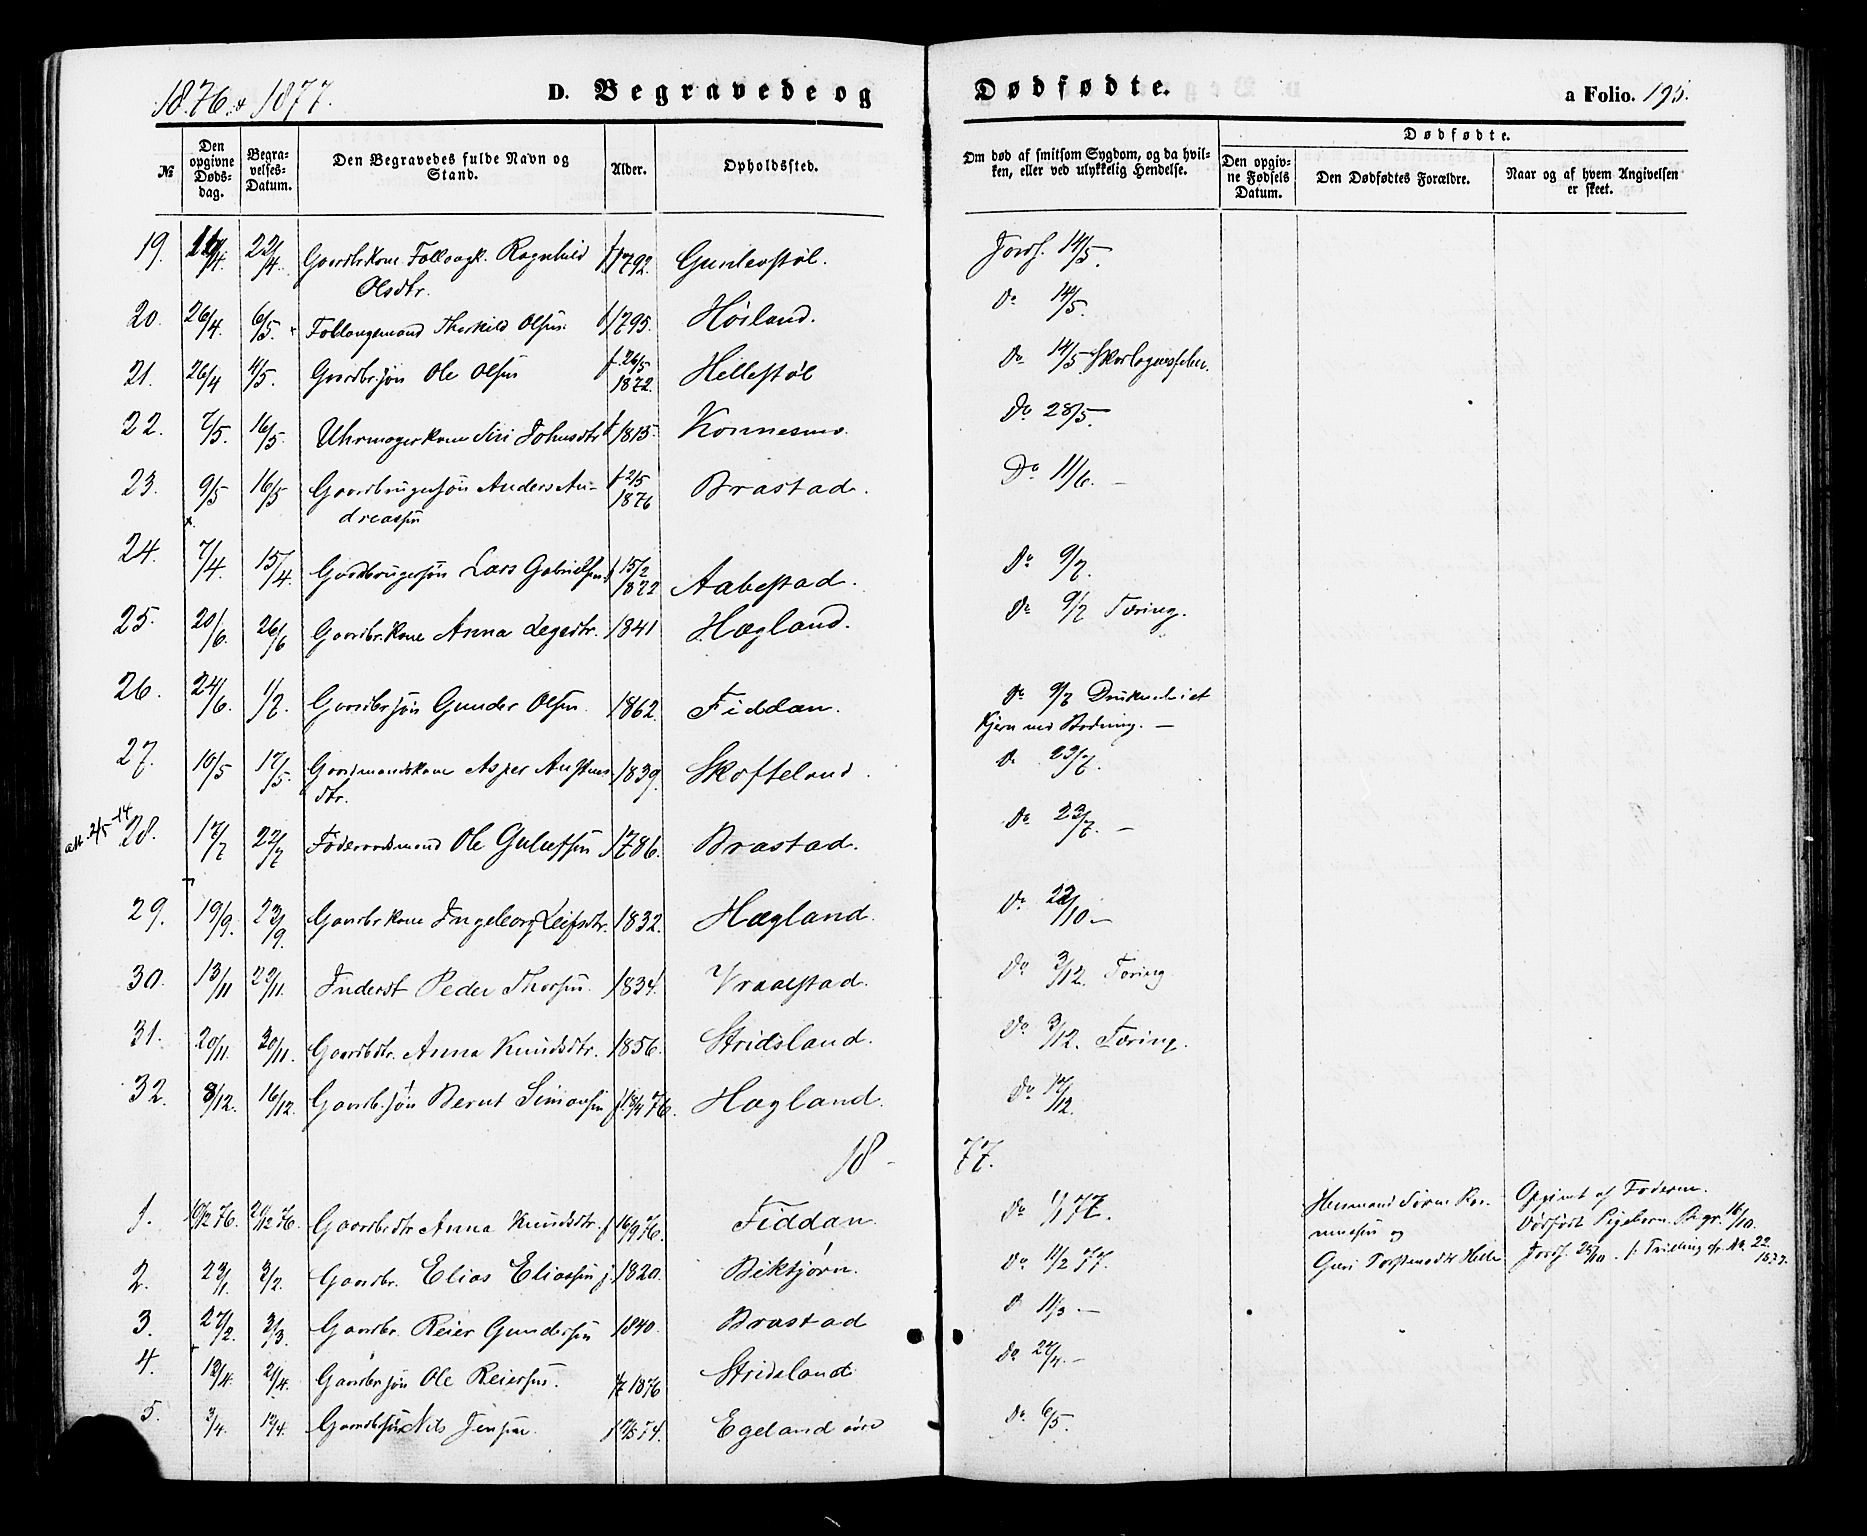 1876 & 1877.
D. Begravede og Dødfødte.
a Folio. 195.
№
Den opgivne Dødsdag.
Begravelses-Datum.
Den Begravedes fulde Navn og Stand.
Alder.
Opholdssted.
Om død af smitsom Sygdom, og da hvilken, eller ved ulykkelig Hendelse.
Dødfødte.
Den opgivne Fødsels Datum.
Den Dødfødtes Forældre.
Naar og af hvem Angivelsen er skeet.
19. 22/4. Gaardbrkone Ragnhild Olsdtr. 1792. Gunlevstøl. Jordf. 14/5.
20. 26/4. 6/5. Therkild Olsen. 1795. Høiland. Do 14/5.
21. 26/4 4/5. Gaardbrsøn Ole Olsen 26/5 1872. Hellestøl Do 14/5
22. 7/5. 16/5. Uhrmagerkone Siri Johnsdtr 1815. Konnesmo. Do 28/5.
23. 9/5 16/5 Gaardbrugersøn Anders Andreassen 2/5 1876 Brastad. Do 11/6.
24. 7/4. 15/4. Gaardbrugersøn Lars Gabrielsen 15/2 1872 Aabestad. Do 9/7.
25. 20/6. 26/6 Gaardbr.kone Anna 1841 Hægland. Do 9/7 Tæring.
26. 24/6. 1/7. Gaardbrsøn Gunder Olsen. 1862. Fiddan. Do 9/7 Druknede i et Kjern ved Badning. —
27. 10/5 17/5. Gaardmandskone Asper dtr. 1839. Skofteland. Do 23/7.
28. 17/7 22/7 Føderaadsmand Ole 1786. Brastad. Do 23/7. —
29. 19/9. 23/9. Gaardbrkone Ingeborg Leifsdtr. 1832. Hægland. Do 22/10 —
30. 13/11 22/11. Inderst Peder Thorsen. 1834. Vraalstad. Do 3/12. Tæring
31. 20/11. 30/11. Gaardbdtr. Anna Knudsdtr. 1856. Stridsland. Do 3/12. Tæring.
32. 8/12. 16/12. Gaardb.søn Bernt Simonsen 18/4 76. Hægland. Do 17/12.
18 - 77.
1. 10/12 76. 76. Gaardbrdtr Anna Knudsdtr. 16/9 76. Fiddan. Do 1/1 77.
Opgivet af Faderen.
Dødfødt Pigebarn. Begr. 16/10.
2. 23/1. 3/2. Gaardbr. Elias Eliassen 1820. Birkjørn. Do 11/2 77.
3. 27/2. 3/3. Gaardbr. Reier Gundersen 1840. Brastad D 11/3 —
4. 12/4. 21/4. Gaardbrsøn Ole Reiersen. 1876 Stridsland Do 22/4. —
5. 3/4. 12/4. Nils Jensen. 74. Egeland øvre Do 6/5.